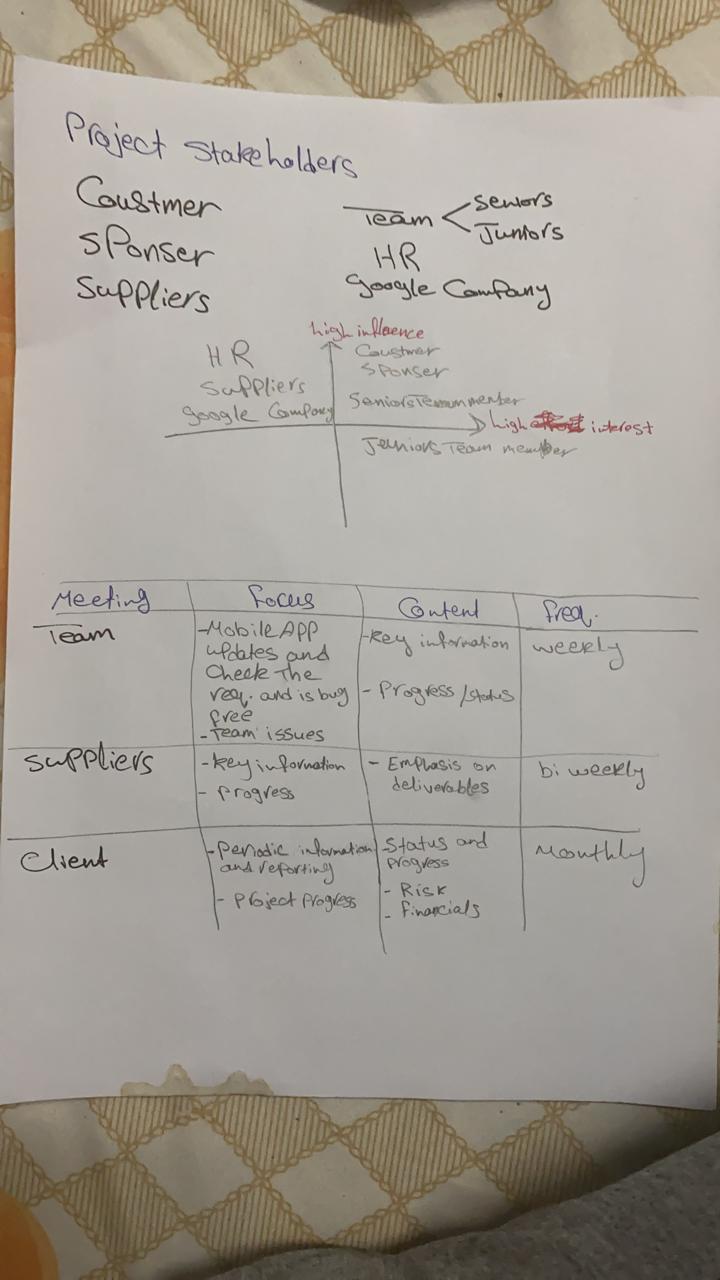 Project Stakeholders
Coustmer
SPonser
Suppliers
Team < Seniors
Juniors
HR
Google Company
high influence
HR
Suppliers
Google Company
Coustmer
SPonser
Seniors Team member
high interest
Jeuniors Team member
Meeting Focus Content freq.
Team
-Mobile APP
updates and
Check The
req. and is bug
free
- Team issues
-Key information
- Progress/status
weekly
Suppliers
- Key information
- progress
- Emphasis on
deliverables
bi weekly
Client
- Periodic information
and reporting
- Project Progress
-Status and
progress
- Risk
- financials
Monthly